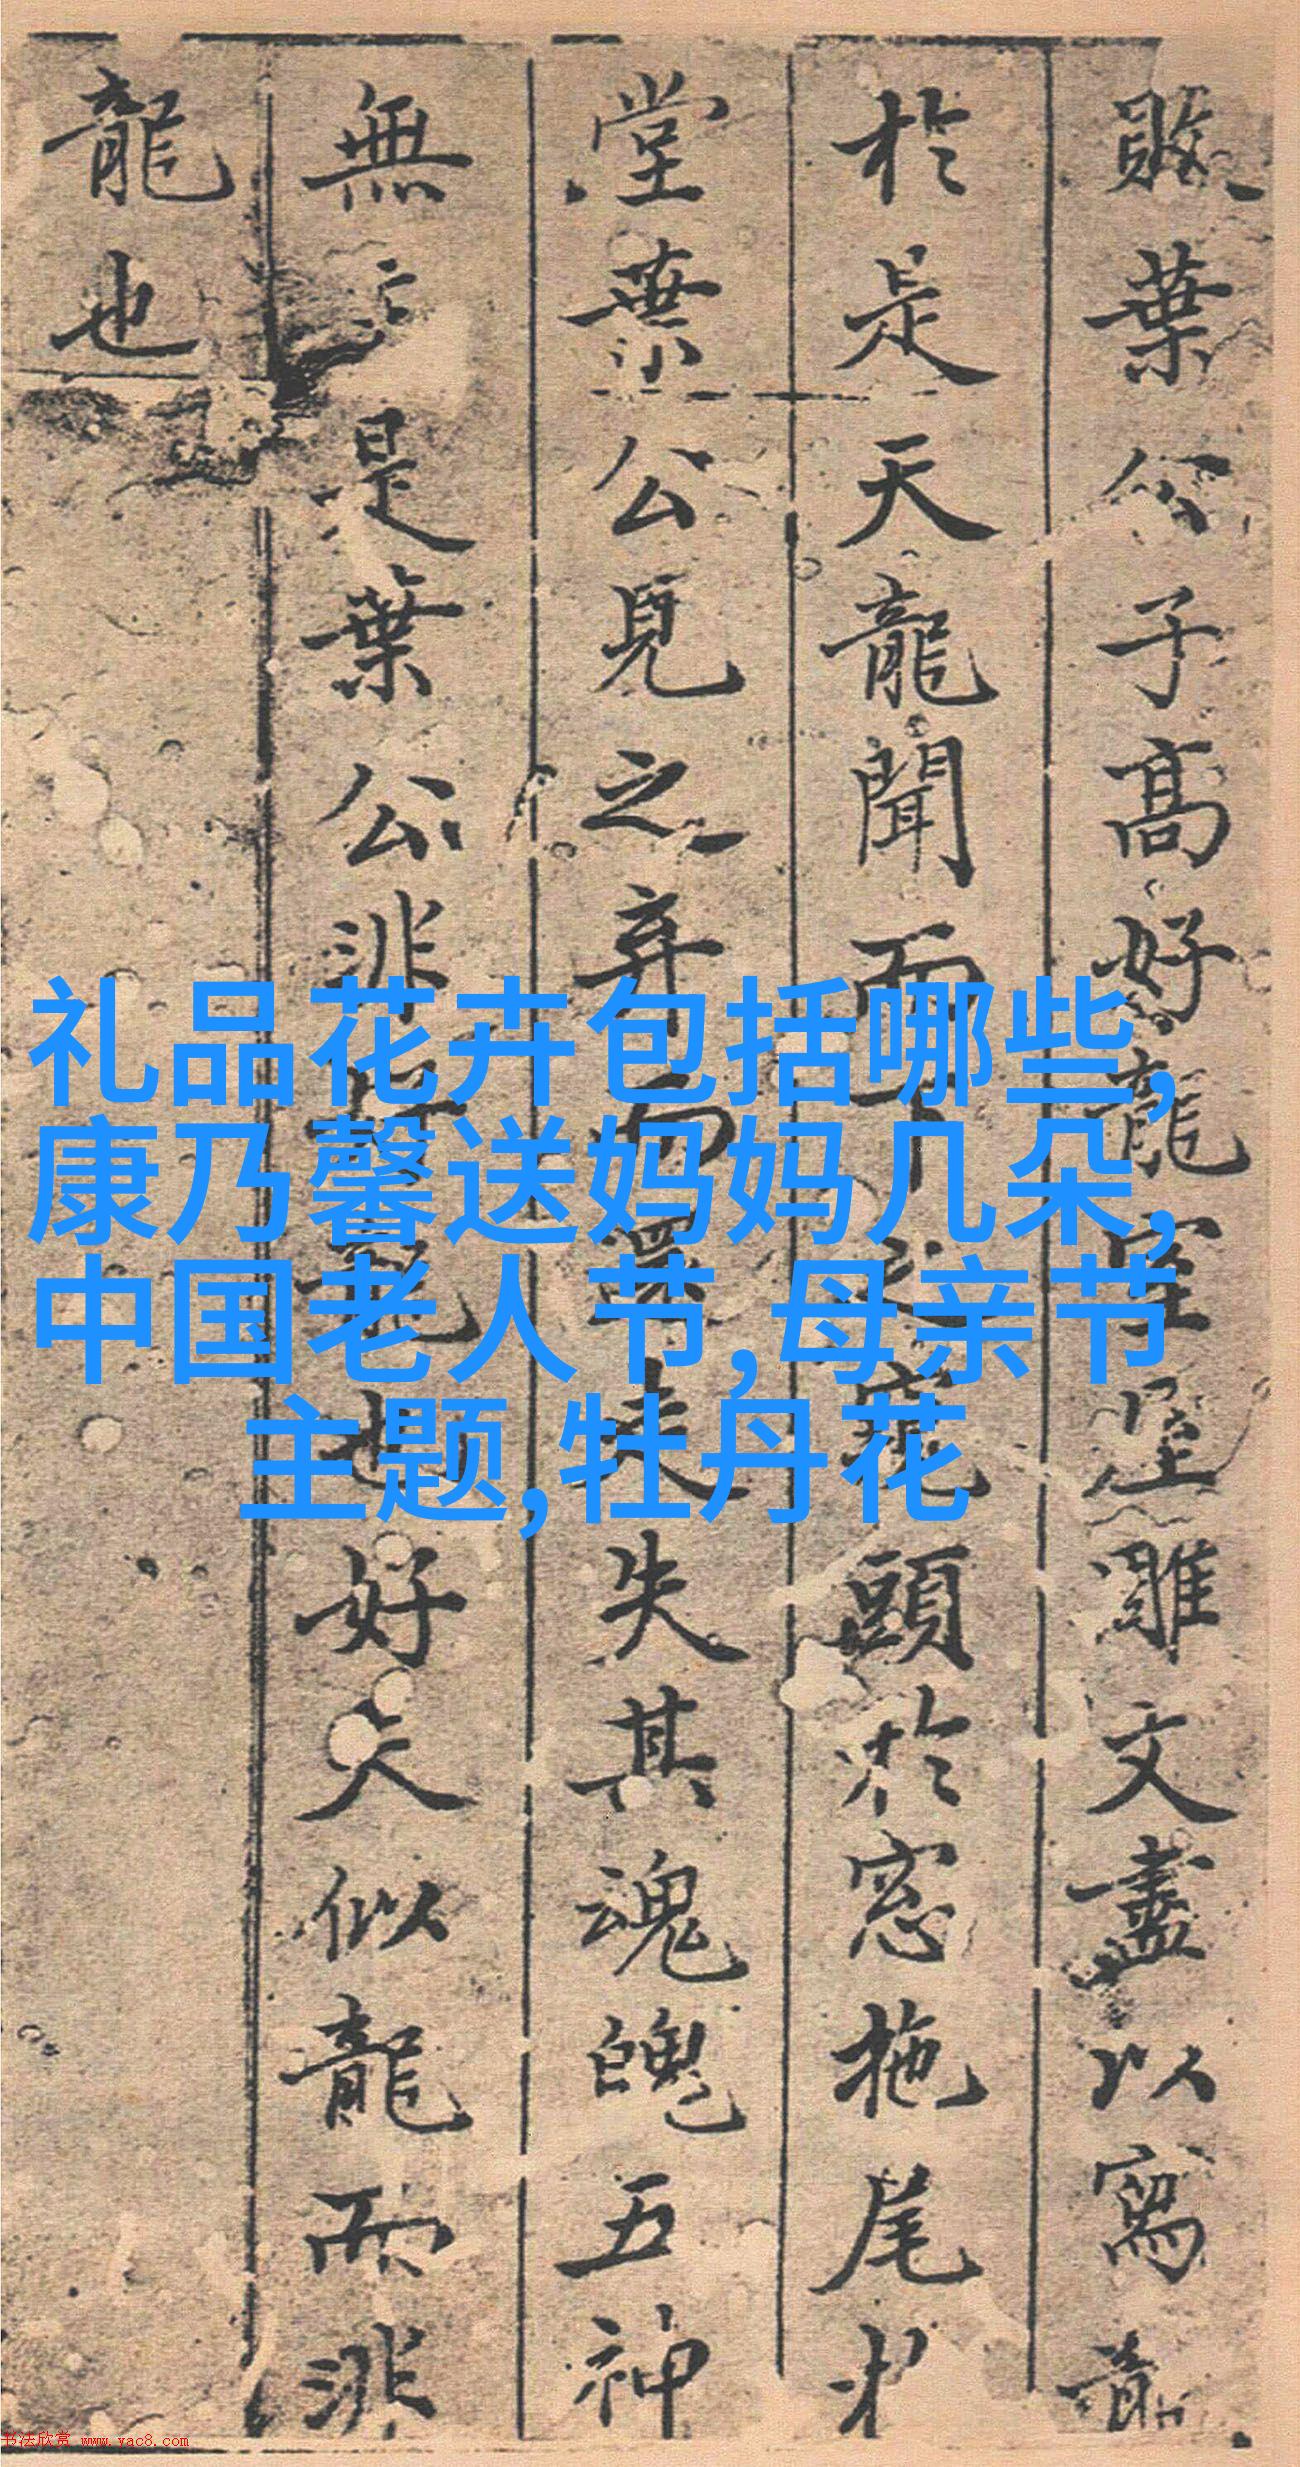 敗葉公子高好龍室屋雕文盡以寫龍
於是天龍聞而下之窺頭於窓拖尾於
堂葉公見之弃而還走失其魂魄五神
無主是葉公非好龍也好夫似龍而非
龍也
礼品花卉包括哪些,
康乃馨送妈妈几朵,
中国老人节,母亲节
主题,牡丹花
书法欣赏 www.yac8.com